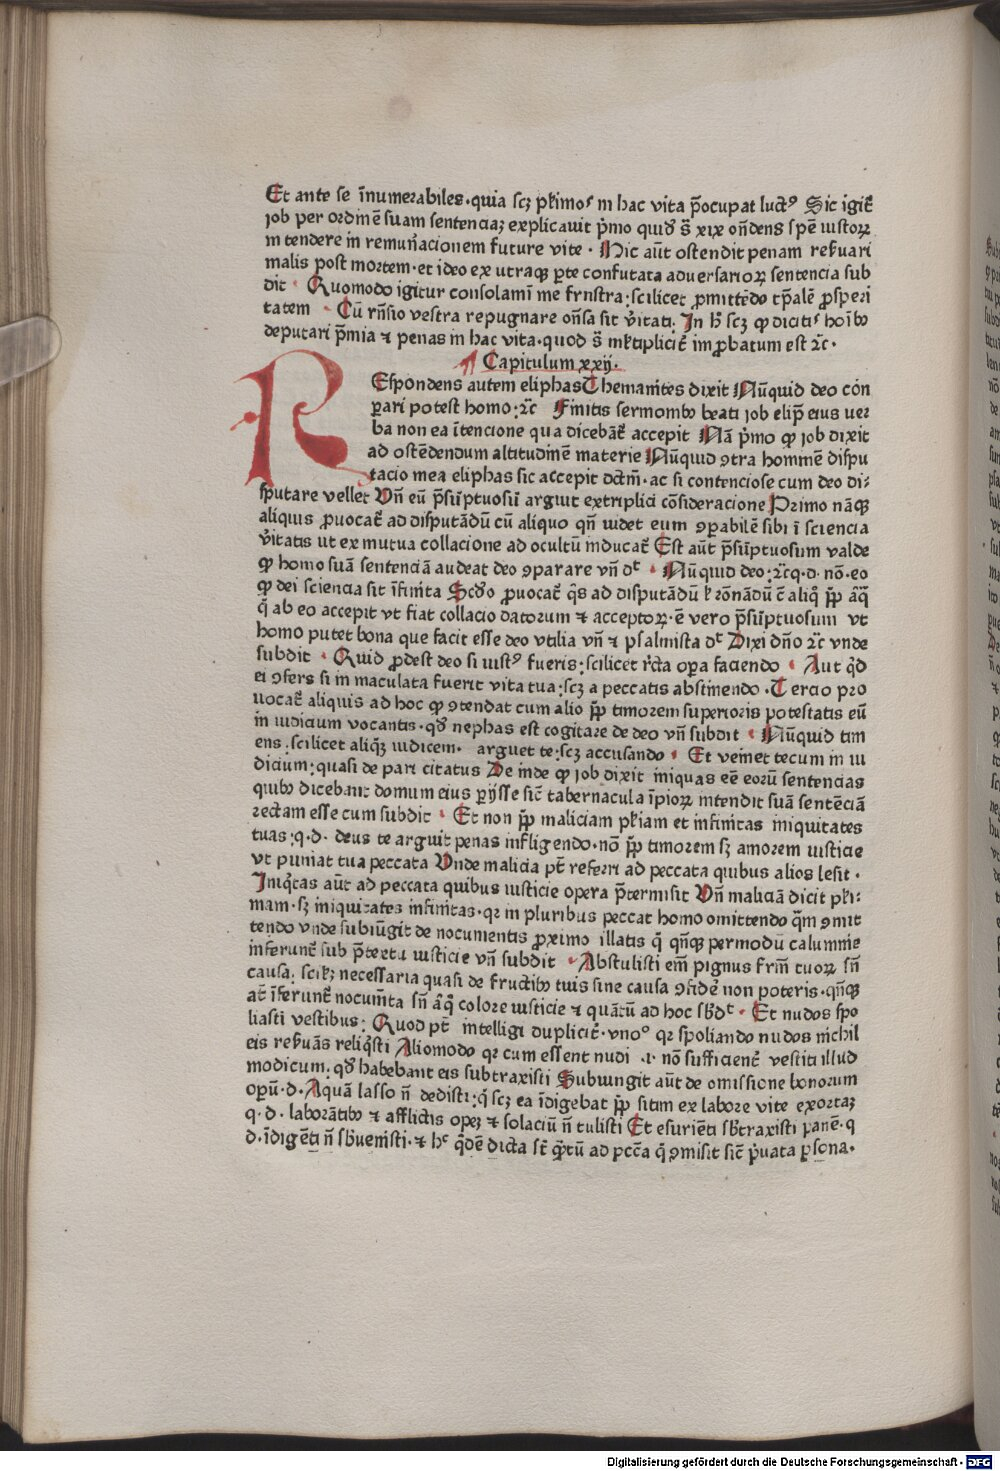 Et ante se īnumerabiles·quia scꝫ pͥmoꝰ in hac vita p̄ocupat luctꝰ Sic igit̄
job per ordinē suam sentenciaꝫ explicauit pͥmo quidē s̄ xix on̄dens spē iustoꝝ
in tendere in remun̄acionem future vite · Hic aūt ostendit penam reẜuari
malis post mortem·et ideo ex utraqꝫ ꝑte confutata aduersarioꝝ sentencia sub
dit · Quomodo igitur consolamī me frustra:scilicet ꝓmittēdo tp̄alē ꝓsperi
tatem · Cū rn̄sio vestra repugnare on̄sa sit v̄itati. In hͦ scꝫ ꝙ dicitis hoībꝰ
deputari p̄mia ⁊ penas in hac vita·quod s̄ ml̄tiplicit̄ improbatum est ⁊c̄·
¶ Capitulum xxij.
REspondens autem eliphas Themanites dixit Nūquid deo con
ꝑari potest homo:⁊c̄ Finitis sermonibꝰ beati iob elip̄ eius uer
ba non ea ītencione qua dicebāt̄ accepit Nā pͥmo ꝙ job dixit
ad ostēdendum altitudinē materie Nūquid ꝯtra hominē dispu
tacio mea eliphas sic accepit dc̄tm̄·ac si contenciose cum deo di⸗
sputare vellet Vn̄ eū p̄sūptuosū arguit ex triplici cōsideracione Primo nāqꝫ
aliquis ꝓuocat̄ ad disputādū cū aliquo qn̄ uidet eum ꝯꝑabilē sibi ī sciencia
v̄itatis ut ex mutua collacione ad ocultū inducat̄ Est aūt p̄sūptuosum valde
ꝙ homo suā sentenciā audeat deo ꝯparare vn̄ dͭ · Nūquid deo:⁊c̄q·d·nō·eo
ꝙ dei sciencia sit īfinita Scd̄o ꝓuocat̄ qͥs ad disputādū ł rōnādū c̄ aliqͦ ꝓp̄ āqͣ
qͣ ab eo accepit vt fiat collacio datorum ⁊ acceptoꝝ·ē vero p̄sūptuosum vt
homo putet bona que facit esse deo vtilia vn̄ ⁊ psalmista dͭ Dixi dn̄o ⁊c̄ vnde
subdit · Quid ꝓdest deo si iustꝰ fueris:scilicet r̄cta oꝑa faciendo · Aut qͥd
ei ꝯfers si in maculata fuerit vita tua:scꝫ a peccatis abstinendo · Tercio pro
uocat̄ aliquis ad hoc ꝙ ꝯtendat cum alio ꝓp̄ timorem superioris potestatis eū
in iudicium vocantis·qd̄ nephas est cogitare de deo vn̄ subdit · Nūquid tim
ens:scilicet aliqͣꝫ iudicem· arguet te:scꝫ accusando · Et veniet tecum in iu
dicium:quasi de pari citatus De inde ꝙ job dixit iniquas eē eorū sentencias
quibꝰ dicebant domum eius ꝑijsse sic̄ tabernacula īpioꝝ intendit suā sentēciā
rectam esse cum subdit · Et non ꝓp̄ maliciam pͥmam et infinitas iniquitates
tuas:q·d· deus te arguit penas infligendo·nō ꝓp̄ timorem sꝫ amorem iusticie
vt puniat tua peccata Vnde malicia pt̄ referri ad peccata quibus alios lesit·
Iniqͥtas aūt ad peccata quibus iusticie opera p̄termisit Vn̄ maliciā dicit pͥ⸗
mam·sꝫ iniquitates infinitas·qꝛ in pluribus peccat homo omittendo qͣm ꝯmit
tendo vnde subiūgit de nocumentis ꝓximo illatis qͣ qn̄qꝫ per modū calumnie
inferunt̄ sub p̄textu iusticie vn̄ subdit · Abstulisti em̄ pignus frm̄ tuoꝝ sn̄
causa. scilꝫ necessaria quasi de fructibꝰ tuis sine causa ꝯfidē non poteris·qn̄qꝫ
at̄ īferunt̄ nocum̄ta sn̄ āqͦ colore iusticie ⁊ quātū ad hoc sb̄dͭ · Et nudos spo
liasti vestibus: Quod pt̄ intelligi duplicit̄·vnoͦ qꝛ spoliando nudos nichil
eis reẜuās reliqͥsti Alio modo qꝛ cum essent nudi ·i· nō sufficient̄ vestiti illud
modicum:qd̄ habebant eis subtraxisti Subiungit aūt de omissione bonorum
opū·d·Aquā lasso n̄ dedisti:qͥ scꝫ ea īdigebat ꝓp̄ sitim ex labore vite exortaꝫ
q·d·laborātibꝰ ⁊ afflictis opeꝫ ⁊ solaciū n̄ tulisti Et esuriēti sb̄traxisti panē·q
d·īdigēti n̄ sb̄uenisti·⁊ hͨ qͥdē dicta st̄ qͣtū ad pccā qͣ ꝯmisit sic̄ pͥuata ꝑsona·
Digitalisierung gefördert durch die Deutsche Forschungsgemeinschaft · DFG